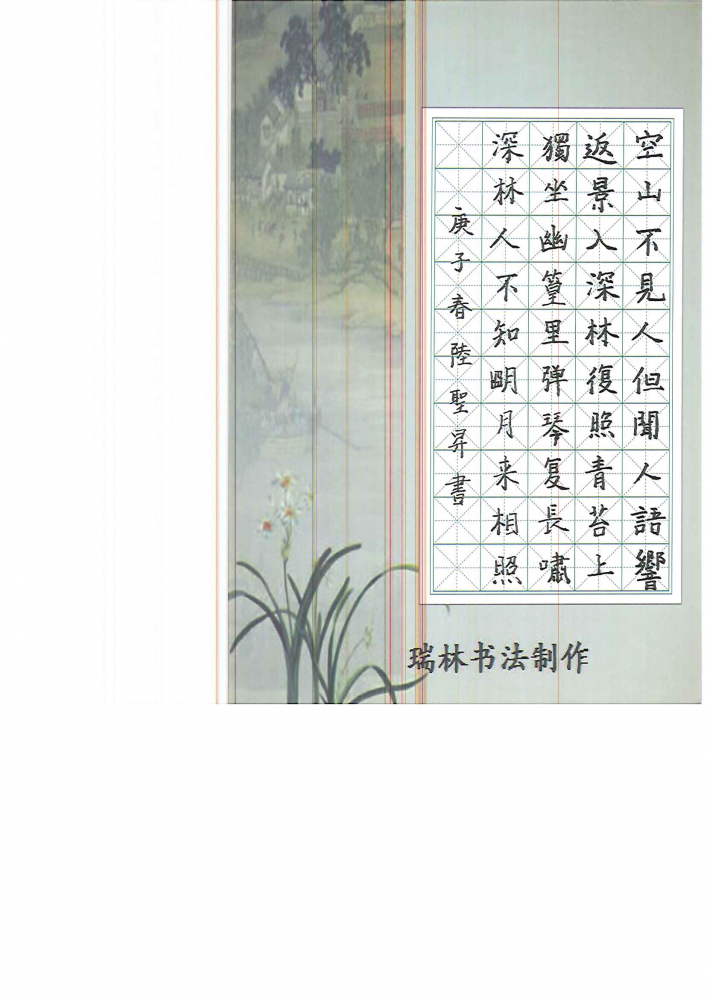 空山不見人但聞人語響
返景入深林復照青苔上
獨坐幽篁里弹琴复長嘯
深林人不知明月来相照
庚子春陸聖昇書
瑞林书法制作